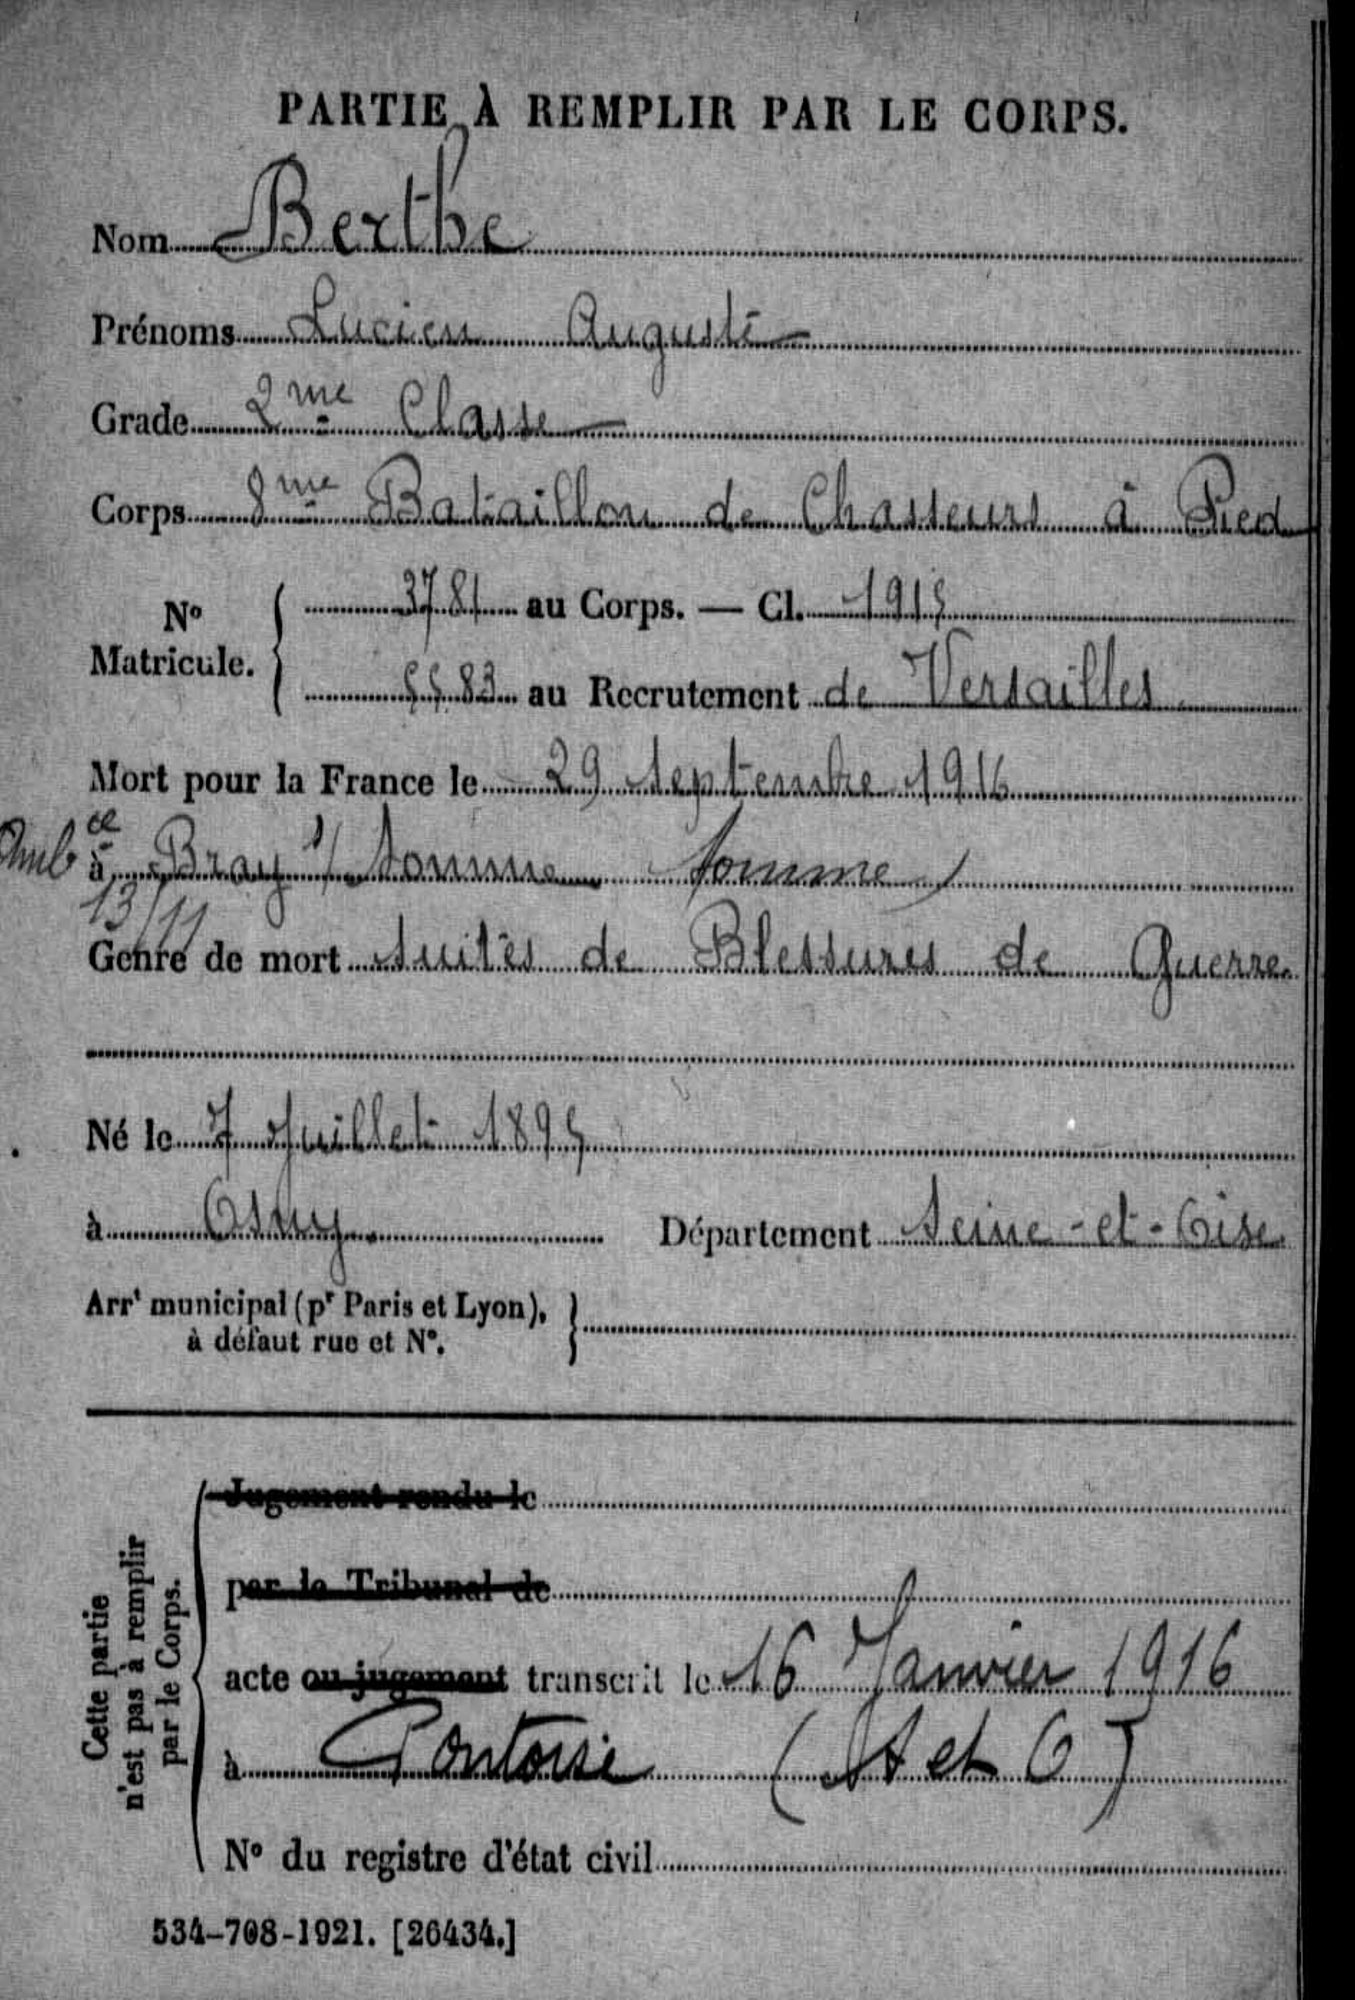 PARTIE À REMPLIR PAR LE CORPS.
Nom Berthe
Prénoms Lucien Auguste
Grade 2me Classe
Corps 8me Bataillon de Chasseurs à Pied
No Matricule. { 3781 au Corps. — Cl. 1915
5583 au Recrutement de Versailles
Mort pour la France le 29 Septembre 1916
Ambce 13/11 à Bray s/ Somme Somme)
Genre de mort Suites de Blessures de Guerre
Né le 7 Juillet 1895
à Osny Département Seine-et-Oise
Arrt municipal (pr Paris et Lyon), }
à défaut rue et No.
Cette partie
n'est pas à remplir
par le Corps.
Jugement rendu le
par le Tribunal de
acte ou jugement transcrit le 16 Janvier 1916
à Pontoise (S et O)
No du registre d'état civil
534-708-1921. [26434.]